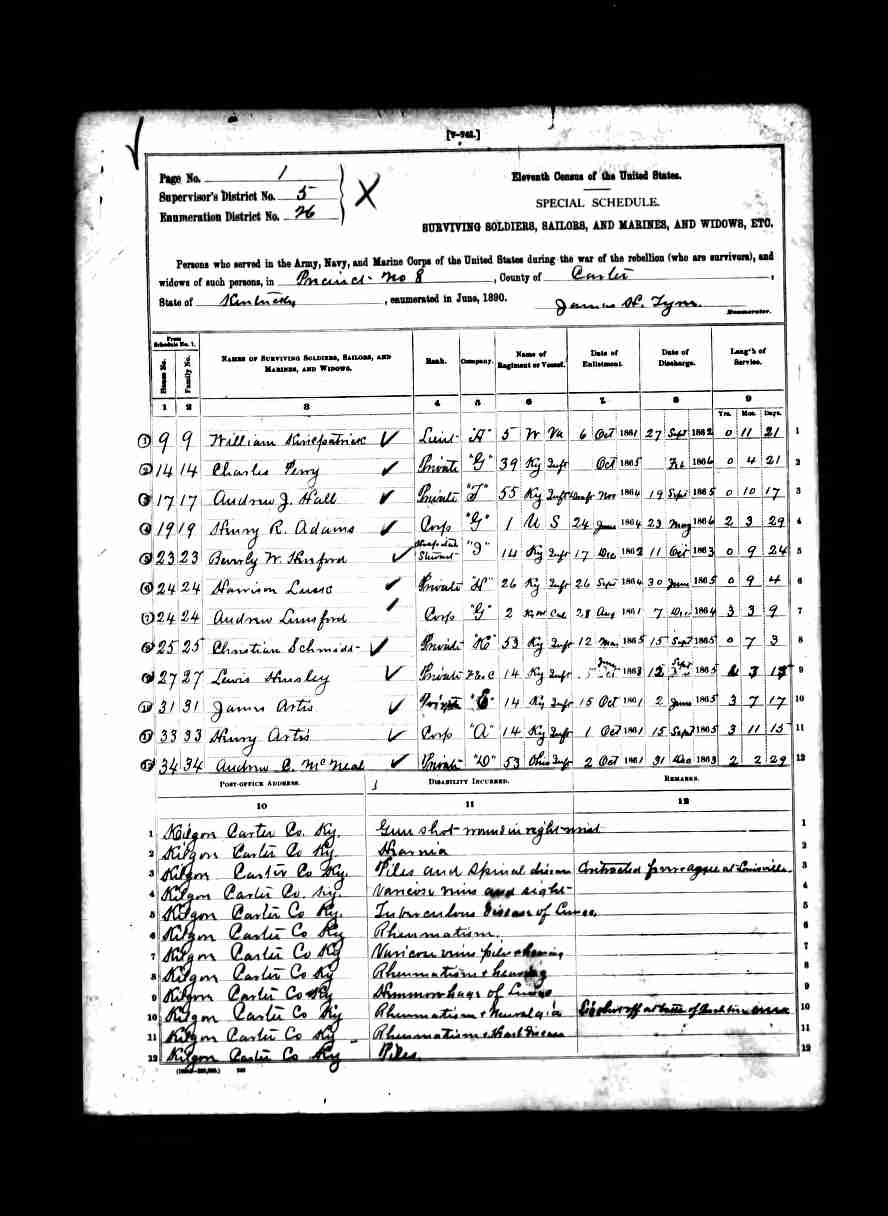 [7-762.]
Page No. 1
Supervisor's District No. 5
Enumeration District No. 26
Eleventh Census of the United States.
SPECIAL SCHEDULE.
SURVIVING SOLDIERS, SAILORS, AND MARINES, AND WIDOWS, ETC.
Persons who served in the Army, Navy, and Marine Corps of the United States during the war of the rebellion (who are survivors), and
widows of such persons, in Precinct No 8, County of Carter,
State of Kentucky, enumerated in June, 1890. James
Enumerator.
From Schedule No. 1.
House No. Family No. NAMES OF SURVIVING SOLDIERS, SAILORS, AND MARINES, AND WIDOWS. Rank. Company. Name of Regiment or Vessel. Date of Enlistment. Date of Discharge. Length of Service.
1 2 3 4 5 6 7 8 9
Yrs. Mos. Days.
1 9 9 William Lieut "A" 5 W Va 6 Oct 1861 27 Sept 1862 0 11 21 1
2 14 14 Charles Perry Private "G" 39 Ky Inft Oct 1865 Feb 1866 0 4 21 2
3 17 17 Andrew J. Hall Private 55 Ky Inft Nov 1864 19 Sept 1865 0 10 17 3
4 19 19 Henry R. Adams Corp "G" 1 U S 24 June 1864 23 May 1866 2 3 29 4
5 23 23 Beverly W. Hospital Steward 14 Ky Inft 17 Dec 1862 11 Oct 1863 0 9 24 5
6 24 24 Harrison Private "H" 26 Ky Inft 26 Sept 1864 30 June 1865 0 9 4 6
7 24 24 Andrew Lunsford Corp "G" 2 Cal 28 Aug 1861 7 Dec 1864 3 3 9 7
8 25 25 Christian Schmidt Private "K" 53 Ky Inft 12 Mar 1865 15 Sept 1865 0 7 3 8
9 27 27 Lewis Hensley Private 14 Ky Inft 1863 12 Sept 1865 9
10 31 31 James Artis Private "E" 14 Ky Inft 15 Oct 1861 2 June 1865 3 7 17 10
11 33 33 Henry Artis Corp "A" 14 Ky Inft 1 Oct 1861 15 Sept 1865 3 11 15 11
12 34 34 Andrew C. McNeal Private "D" 53 Ohio Inft 2 Oct 1861 31 Dec 1863 2 2 29 12
POST-OFFICE ADDRESS. DISABILITY INCURRED. REMARKS.
10 11 12
1 Kilgon Carter Co. Ky. Gun shot wound in right wrist 1
2 Kilgon Carter Co Ky Hearnia 2
3 Kilgon Carter Co Ky. Piles and Spinal disease Contracted at Louisville 3
4 Kilgon Carter Co. Ky. Varicose veins and sight 4
5 Kilgon Carter Co Ky. Tuberculous disease of Lungs, 5
6 Kilgon Carter Co Ky Rheumatism. 6
7 Kilgon Carter Co Ky Varicose veins piles & hearing 7
8 Kilgon Carter Co Ky Rheumatism & hearing 8
9 Kilgon Carter Co Ky of Lungs 9
10 Kilgon Carter Co Ky Rheumatism & Neuralgia 10
11 Kilgon Carter Co Ky Rheumatism & Heart disease 11
12 Kilgon Carter Co Ky Piles. 12